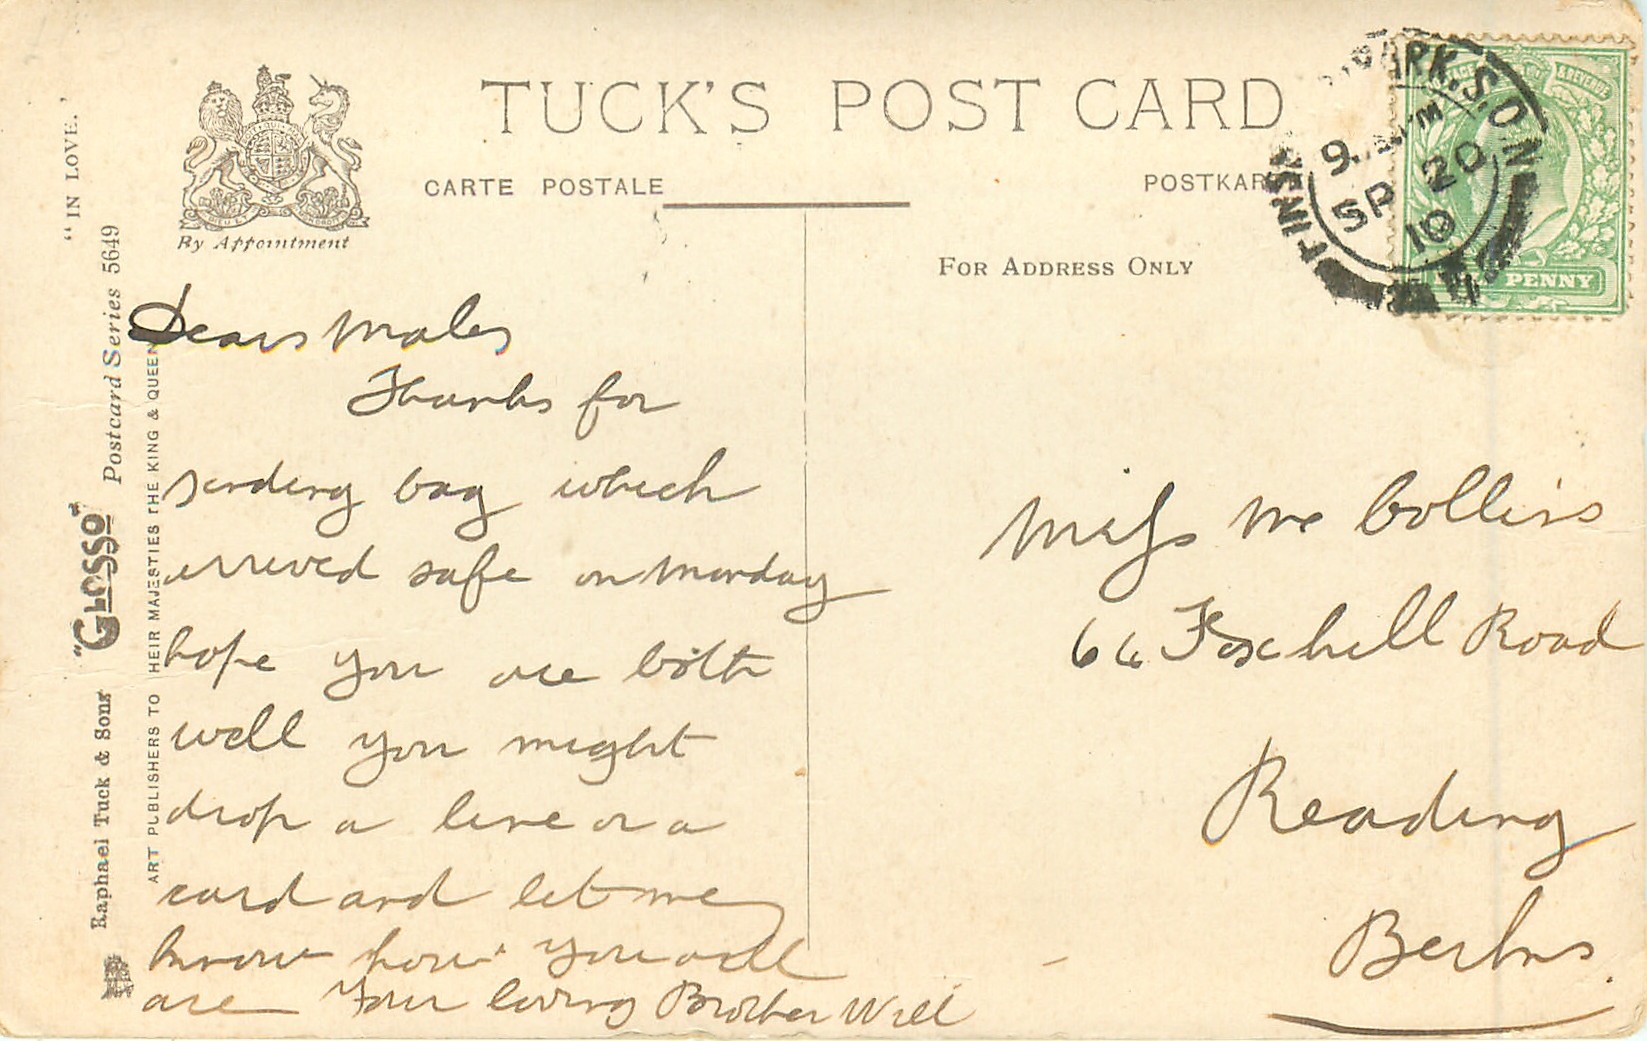 TUCK'S POST CARD
CARTE POSTALE
POSTKAR
By Appointment
FOR ADDRESS ONLY
"IN LOVE."
"GLOSSO" Postcard Series 5649
Raphael Tuck & Sons'
ART PUBLISHERS TO HEIR MAJESTIES THE KING & QUEEN
ARK.S.O
9.
SP 20
10
& REVENUE
PENNY
Dear
Thanks for
sending bag which
arrived safe on Monday
hope you are both
well you might
drop a line or a
card and let me
know how you all
are Your loving Brother Will
Miss Collins
Foxhill Road
Reading
Berks.